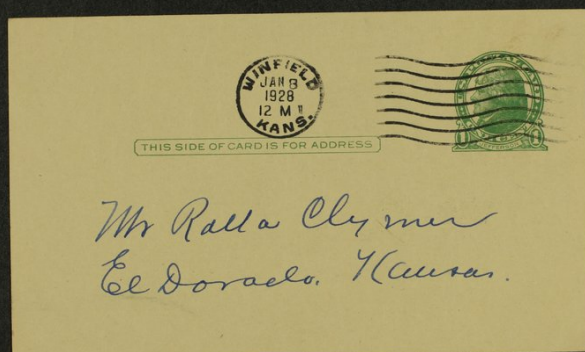 WINFIELD
JAN 8
1928
12 M
KANS.
THIS SIDE OF CARD IS FOR ADDRESS
JEFFERSON
Mr Rolla Clymer
El Dorado. Kansas.